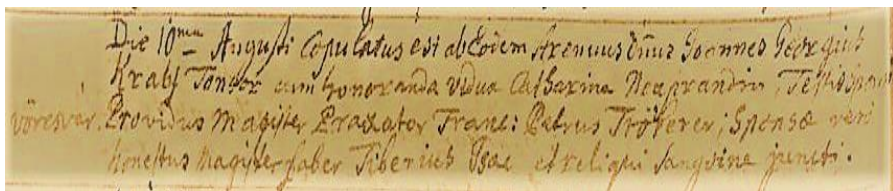 Die 10ma Augusti Copulatus est ab Eodem Strenuus Dnus Joannes Georgius
Krabs Tonsor cum honoranda vidua Catharina Neaprandin, Testis sponsi
vöresvár. Providus Magister Braxator Franc: Petrus Tröberer; Sponsæ vero
honestus Magister faber Tiberius Isac et reliqui Sanguine juncti.